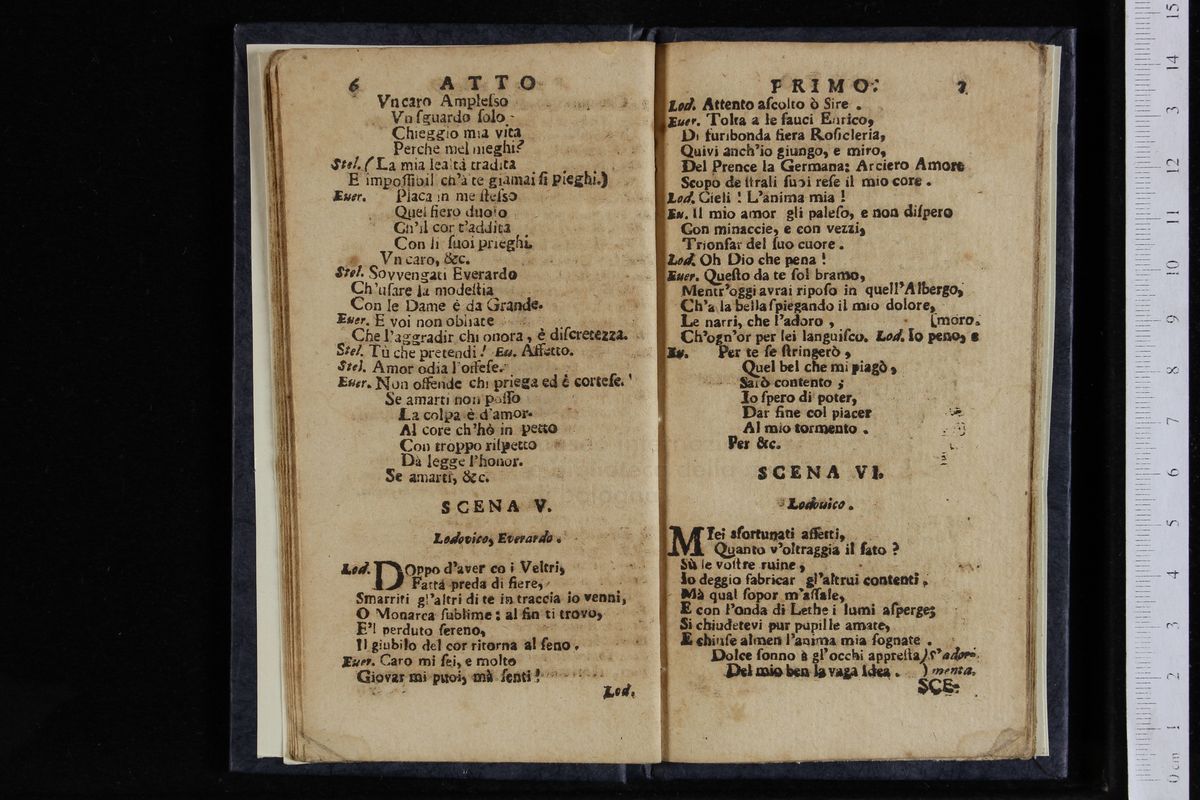 6 ATTO
Vn caro Amplesso
Vn sguardo solo
Chieggio mia vita
Perche mel nieghi?
Stel. ( La mia lealtà tradita
E impossibil ch'à te giamai si pieghi.)
Euer. Placa in me stesso
Quel fiero duolo
Ch'il cor t'addita
Con li suoi prieghi.
Vn caro, &c.
Stel. Sovvengati Everardo
Ch'usare la modestia
Con le Dame è da Grande.
Euer. E voi non obliate
Che l'aggradir chi onora, è discretezza.
Stel. Tù che pretendi! Eu. Affetto.
Stel. Amor odia l'offese.
Euer. Non offende chi priega ed è cortese.
Se amarti non posso
La colpa è d'amor.
Al core ch'hò in petto
Con troppo rispetto
Dà legge l'honor.
Se amarti, &c.
SCENA V.
Lodovico, Everardo.
Lod. DOppo d'aver co i Veltri,
Fatta preda di fiere,
Smarriti gl'altri di te in traccia io venni,
O Monarca sublime: al fin ti trovo,
E'l perduto sereno,
Il giubilo del cor ritorna al seno.
Euer. Caro mi sei, e molto
Giovar mi puoi, mà senti!
Lod.
PRIMO. 7
Lod. Attento ascolto ò Sire.
Euer. Tolta a le fauci Enrico,
Di furibonda fiera Rosicleria,
Quivi anch'io giungo, e miro,
Del Prence la Germana: Arciero Amore
Scopo de strali suoi rese il mio core.
Lod. Cieli! L'anima mia!
Eu. Il mio amor gli paleso, e non dispero
Con minaccie, e con vezzi,
Trionfar del suo cuore.
Lod. Oh Dio che pena!
Euer. Questo da te sol bramo,
Mentr'oggi avrai riposo in quell'Albergo,
Ch'a la bella spiegando il mio dolore,
Le narri, che l'adoro, [moro.
Ch'ogn'or per lei languisco. Lod. Io peno, e
Eu. Per te se stringerò,
Quel bel che mi piagò,
Sarò contento;
Io spero di poter,
Dar fine col piacer
Al mio tormento.
Per &c.
SCENA VI.
Lodouico.
MIei sfortunati affetti,
Quanto v'oltraggia il fato?
Sù le vostre ruine,
Io deggio fabricar gl'altrui contenti.
Mà qual sopor m'assale,
E con l'onda di Lethe i lumi asperge;
Si chiudetevi pur pupille amate,
E chiuse almen l'anima mia sognate.
Dolce sonno à gl'occhi appresta) s'ador-
Del mio ben la vaga Idea. ) menta.
SCE-